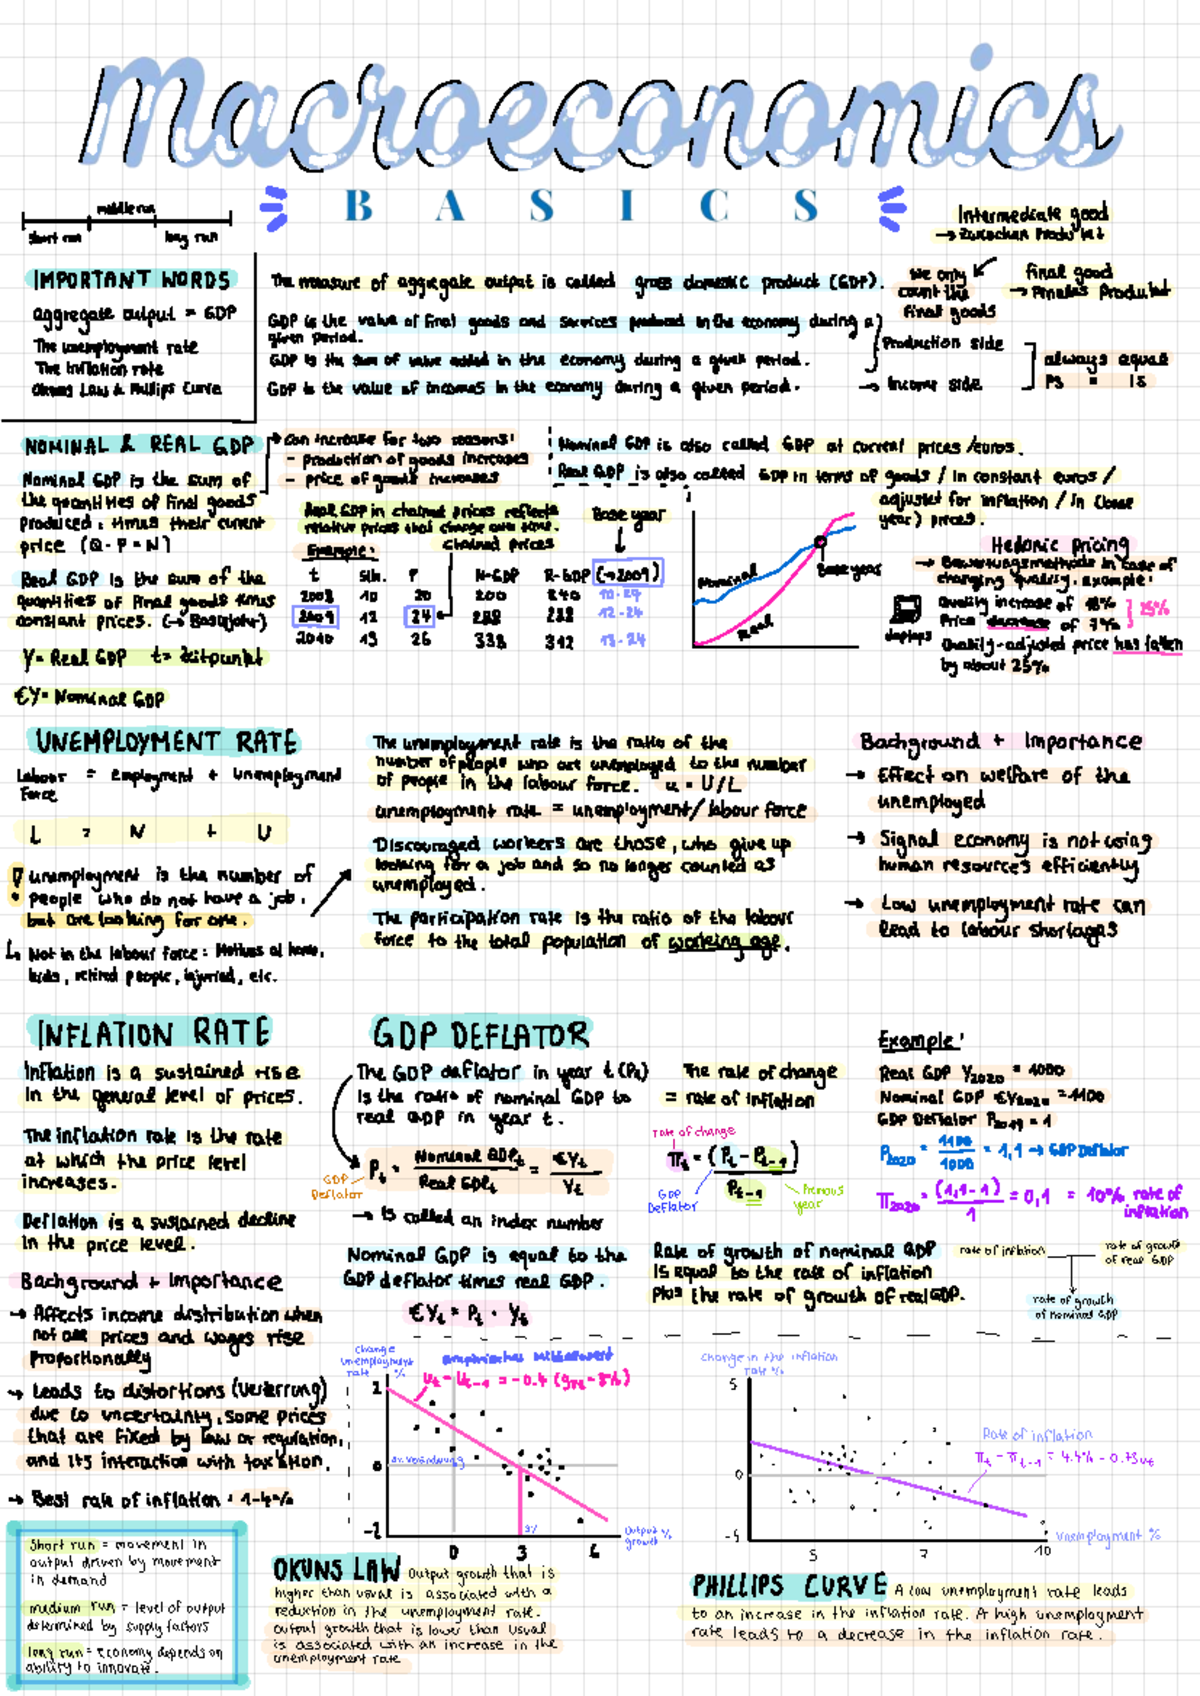 Macroeconomics
BASICS
middle run
short run
long run
Intermediate good
final good
We only
count the
final goods
IMPORTANT WORDS
aggregate output = GDP
The unemployment rate
The inflation rate
Okuns Law & Phillips Curve
The measure of aggregate output is called gross domestic product (GDP).
GDP is the value of final goods and services produced in the economy during a
given period.
GDP is the sum of value added in the economy during a given period.
GDP is the value of incomes in the economy during a given period.
Production side
→ Income side
always equal
PS = IS
NOMINAL & REAL GDP
Nominal GDP is the sum of
the quantities of final goods
produced, times their current
price (Q · P = N)
Real GDP is the sum of the
quantities of final goods times
constant prices. (→ Basisjahr)
Y = Real GDP t = Zeitpunkt
€Y = Nominal GDP
can increase for two reasons:
- production of goods increases
- price of goods increases
Real GDP in chained prices reflects
relative prices that change over time.
Example:
chained prices
Base year
t P N-GDP R-GDP (→2009)
2008 10 20 200 240 10·24
2009 12 24 288 288 12·24
2010 13 26 338 312 13·24
Nominal GDP is also called GDP at current prices /euros.
Real GDP is also called GDP in terms of goods / in constant euros /
adjusted for inflation / in (base
year) prices.
Nominal
Real
Base year
Hedonic pricing
→ Bewertungsmethode in case of
changing quality. example:
laptops
Quality increase of 18%
Price decrease of 7%
25%
Quality-adjusted price has fallen
by about 25%
UNEMPLOYMENT RATE
Labour = employment + unemployment
Force
L = N + U
! unemployment is the number of
people who do not have a job,
but are looking for one.
↳ Not in the labour force: Mothers at home,
kids, retired people, injured, etc.
The unemployment rate is the ratio of the
number of people who are unemployed to the number
of people in the labour force. u = U/L
unemployment rate = unemployment/labour force
Discouraged workers are those, who give up
looking for a job and so no longer counted as
unemployed.
The participation rate is the ratio of the labour
force to the total population of working age.
Background + Importance
→ Effect on welfare of the
unemployed
→ Signal economy is not using
human resources efficiently
→ Low unemployment rate can
lead to labour shortages
INFLATION RATE
Inflation is a sustained rise
in the general level of prices.
The inflation rate is the rate
at which the price level
increases.
Deflation is a sustained decline
in the price level.
Background + Importance
→ Affects income distribution when
not all prices and wages rise
proportionally
→ Leads to distortions (Verzerrung)
due to uncertainty, some prices
that are fixed by law or regulation,
and its interaction with taxation.
→ Best rate of inflation: 1-4%
GDP DEFLATOR
The GDP deflator in year t (Pt)
is the ratio of nominal GDP to
real GDP in year t.
Pt = Nominal GDPt / Real GDPt = €Yt / Yt
GDP
Deflator
→ is called an index number
Nominal GDP is equal to the
GDP deflator times real GDP.
€Yt = Pt · Yt
The rate of change
= rate of inflation
rate of change
πt = (Pt - Pt-1) / Pt-1
GDP
Deflator
Previous
year
Rate of growth of nominal GDP
is equal to the rate of inflation
plus the rate of growth of real GDP.
Example:
Real GDP Y2020 = 1000
Nominal GDP €Y2020 = 1100
GDP Deflator P2019 = 1
P2020 = 1100 / 1000 = 1,1 → GDP Deflator
π2020 = (1,1-1) / 1 = 0,1 = 10% rate of
inflation
rate of inflation
rate of growth
of real GDP
rate of growth
of nominal GDP
Change
unemployment
rate %
ut - ut-1 = -0.4 (gyt - 3%)
0
3%
Output %
growth
0 3 6
OKUNS LAW Output growth that is
higher than usual is associated with a
reduction in the unemployment rate.
output growth that is lower than usual
is associated with an increase in the
unemployment rate
Change in the inflation
rate %
5
0
-5
Rate of inflation
πt - πt-1 = 4.4% - 0.73ut
Unemployment %
5 7 10
PHILLIPS CURVE A low unemployment rate leads
to an increase in the inflation rate. A high unemployment
rate leads to a decrease in the inflation rate.
Short run = movement in
output driven by movement
in demand
medium run = level of output
determined by supply factors
long run = Economy depends on
ability to innovate.